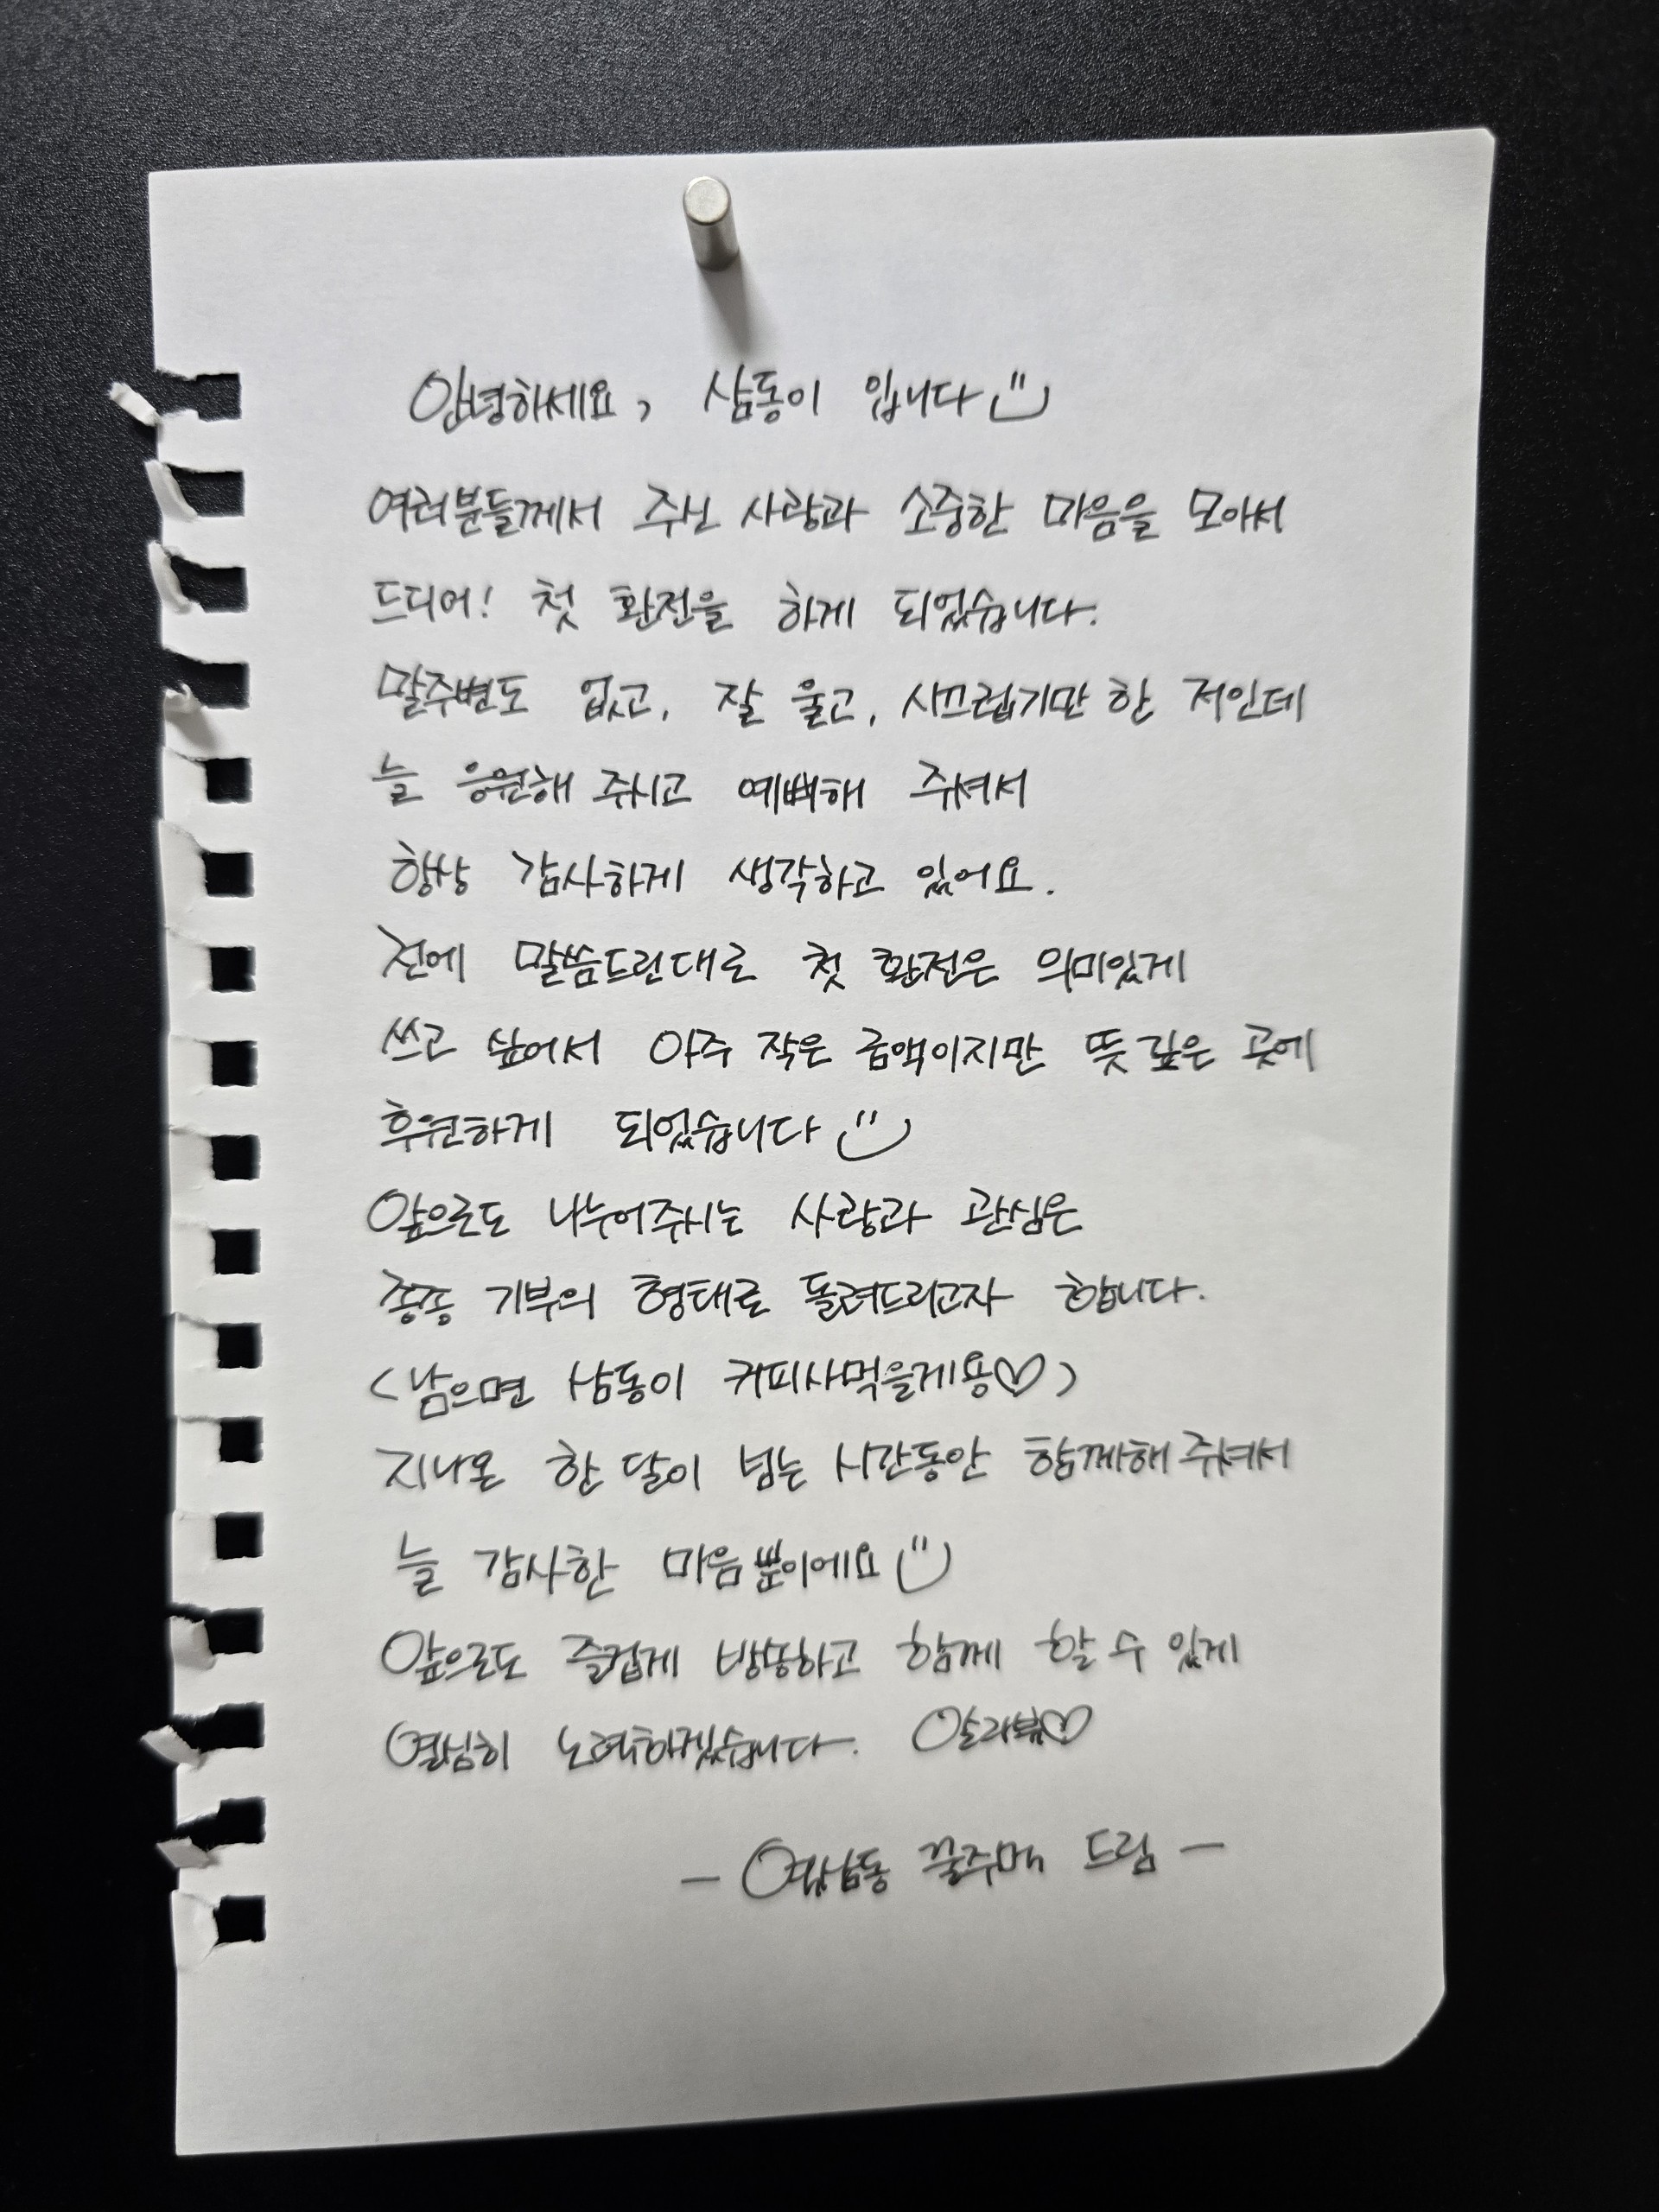 안녕하세요, 삼동이 입니다
여러분들께서 주신 사랑과 소중한 마음을 모아서
드디어! 첫 환전을 하게 되었습니다.
말주변도 없고, 잘 울고, 시끄럽기만 한 저인데
늘 응원해 주시고 예뻐해 주셔서
항상 감사하게 생각하고 있어요.
전에 말씀드린대로 첫 환전은 의미있게
쓰고 싶어서 아주 작은 금액이지만 뜻 깊은 곳에
후원하게 되었습니다
앞으로도 나누어주시는 사랑과 관심은
종종 기부의 형태로 돌려드리고자 합니다.
<남으면 삼동이 커피사먹을게용♡>
지나온 한 달이 넘는 시간동안 함께해 주셔서
늘 감사한 마음뿐이에요
앞으로도 즐겁게 방송하고 함께 할 수 있게
열심히 노력하겠습니다. 알라뷰♡
- 역삼동 꿀주먹 드림 -